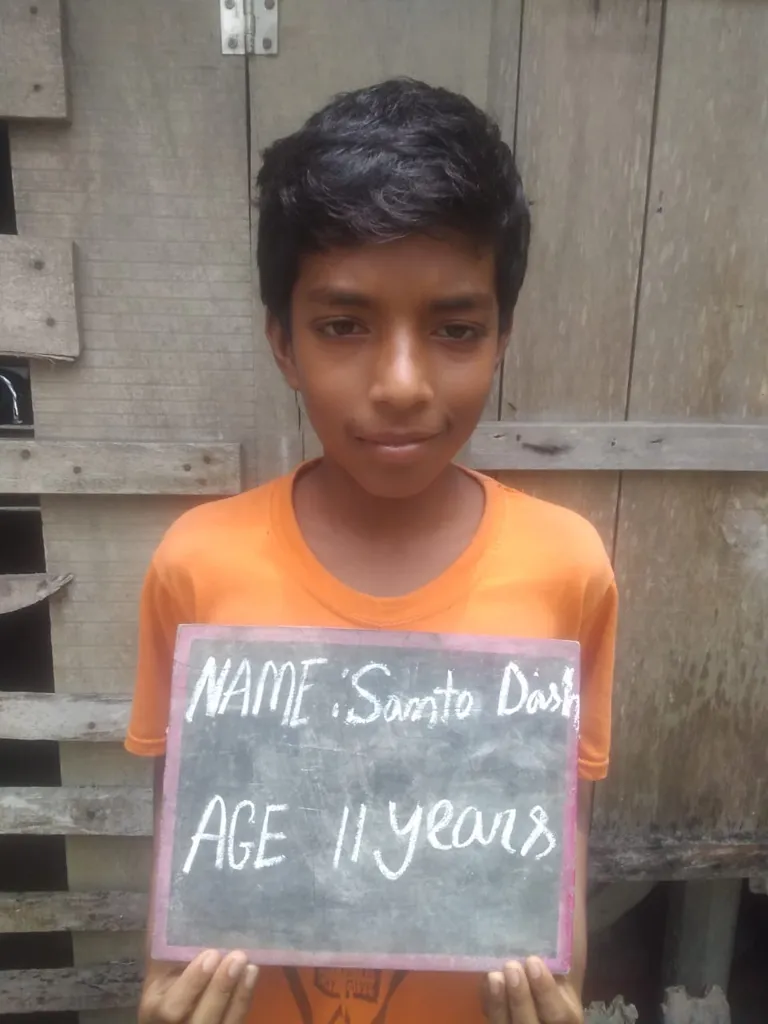 NAME : Santo Dash
AGE 11 years